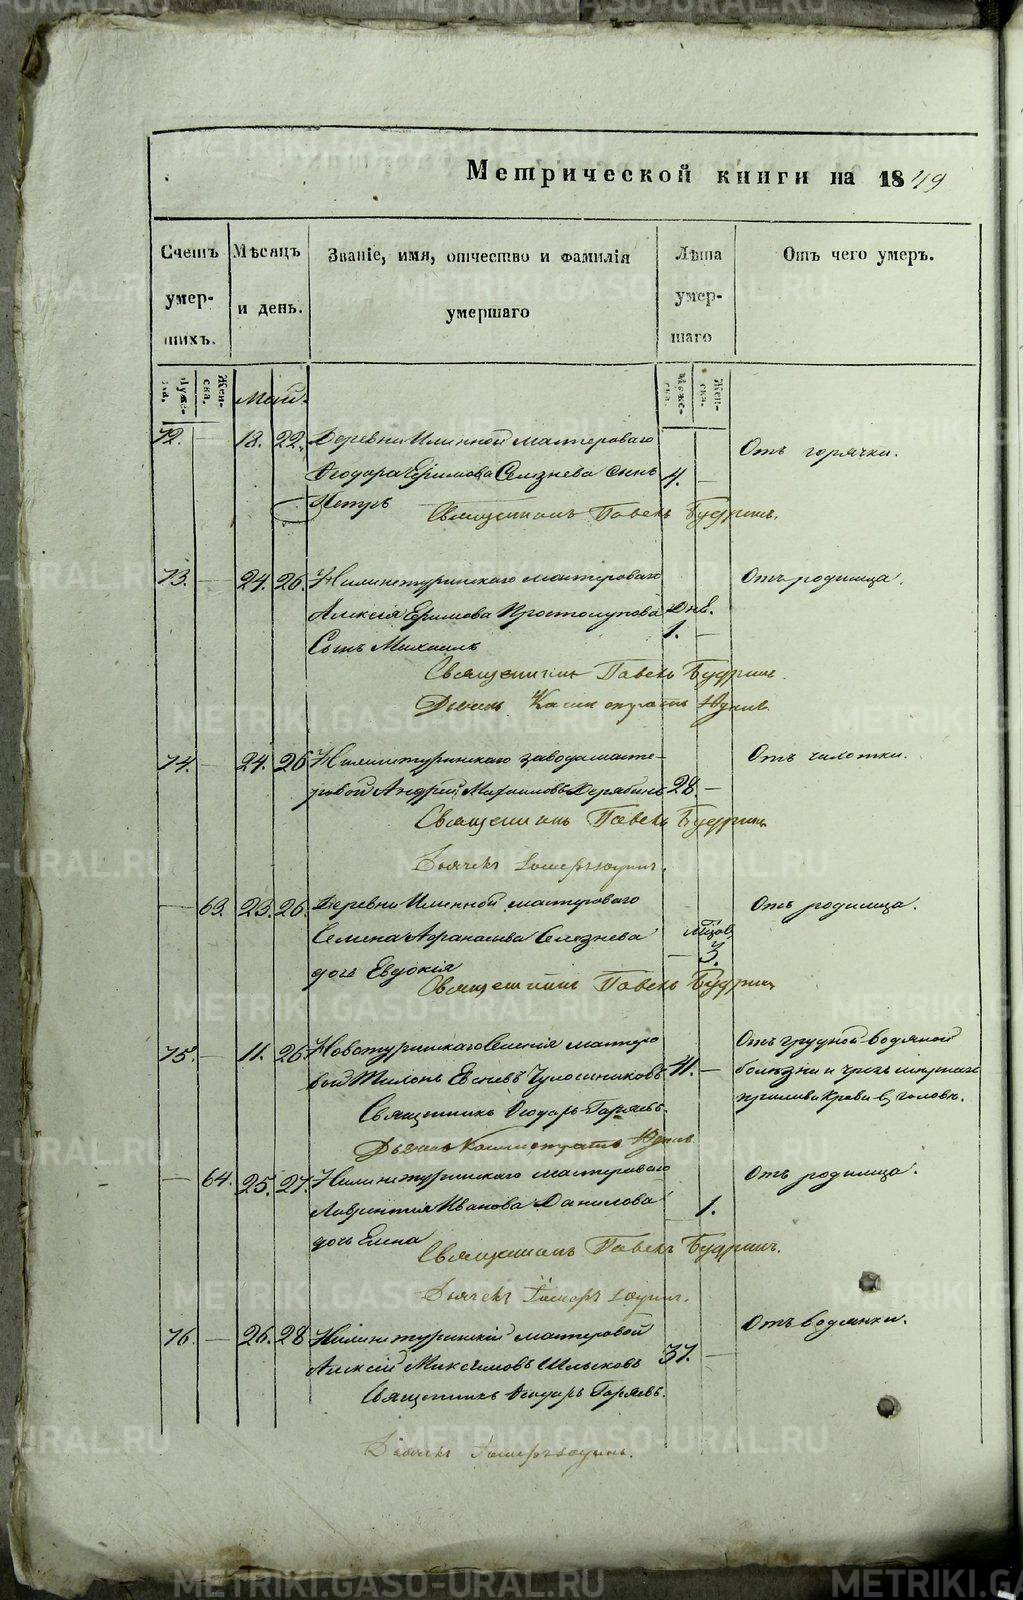 Метрической книги на 1849
Счетъ умершихъ.
Мѣсяцъ и день.
Званіе, имя, отчество и фамилія умершаго
Лѣта умершаго
Отъ чего умеръ.
Мужеска.
Женска.
Май.
Мужеска.
Женска.
72. — 18. 22. Деревни Илинной мастероваго
Ѳеодора Ефимова Селезнева сынъ 4. — Отъ горячки.
Петръ
Священникъ Павелъ Будринъ.
73. — 24. 26. Нижнетуринскаго мастероваго Отъ родимца.
Алексія Ефимова Простолупова Днь.
Сынъ Михаилъ 1. —
Священникъ Павелъ Будринъ.
Дьячекъ
74. — 24. 26 Нижнетуринскаго завода масте-
ровой Андрей Михаиловъ Дерябинъ 28 — Отъ чахотки.
Священникъ Павелъ Будринъ
Дьячекъ
— 63. 23. 26. Деревни Илинной мастероваго Отъ родимца.
Семена Афанасьева Селезнева Мѣсяцов.
дочь Евдокія — 3.
Священникъ Павелъ Будринъ
75. — 11. 26. Новотуринскаго Селенія мастеро Отъ грудной водяной
вой Филонъ 41. — болѣзни и чрезъ
прилива крови въ головѣ.
Священникъ Ѳеодоръ Горяевъ.
— 64. 25. 27. Нижнетуринскаго мастероваго Отъ родимца.
Лаврентія Иванова Данилова — 1.
дочь Елена
Священникъ Павелъ Будринъ.
Дьячекъ
76. — 26. 28 Нижнетуринскій мастеровой Отъ водянки.
Алексій Максимовъ 37. —
Священникъ Ѳеодоръ Горяевъ.
Дьячекъ
METRIKI.GASO-URAL.RU